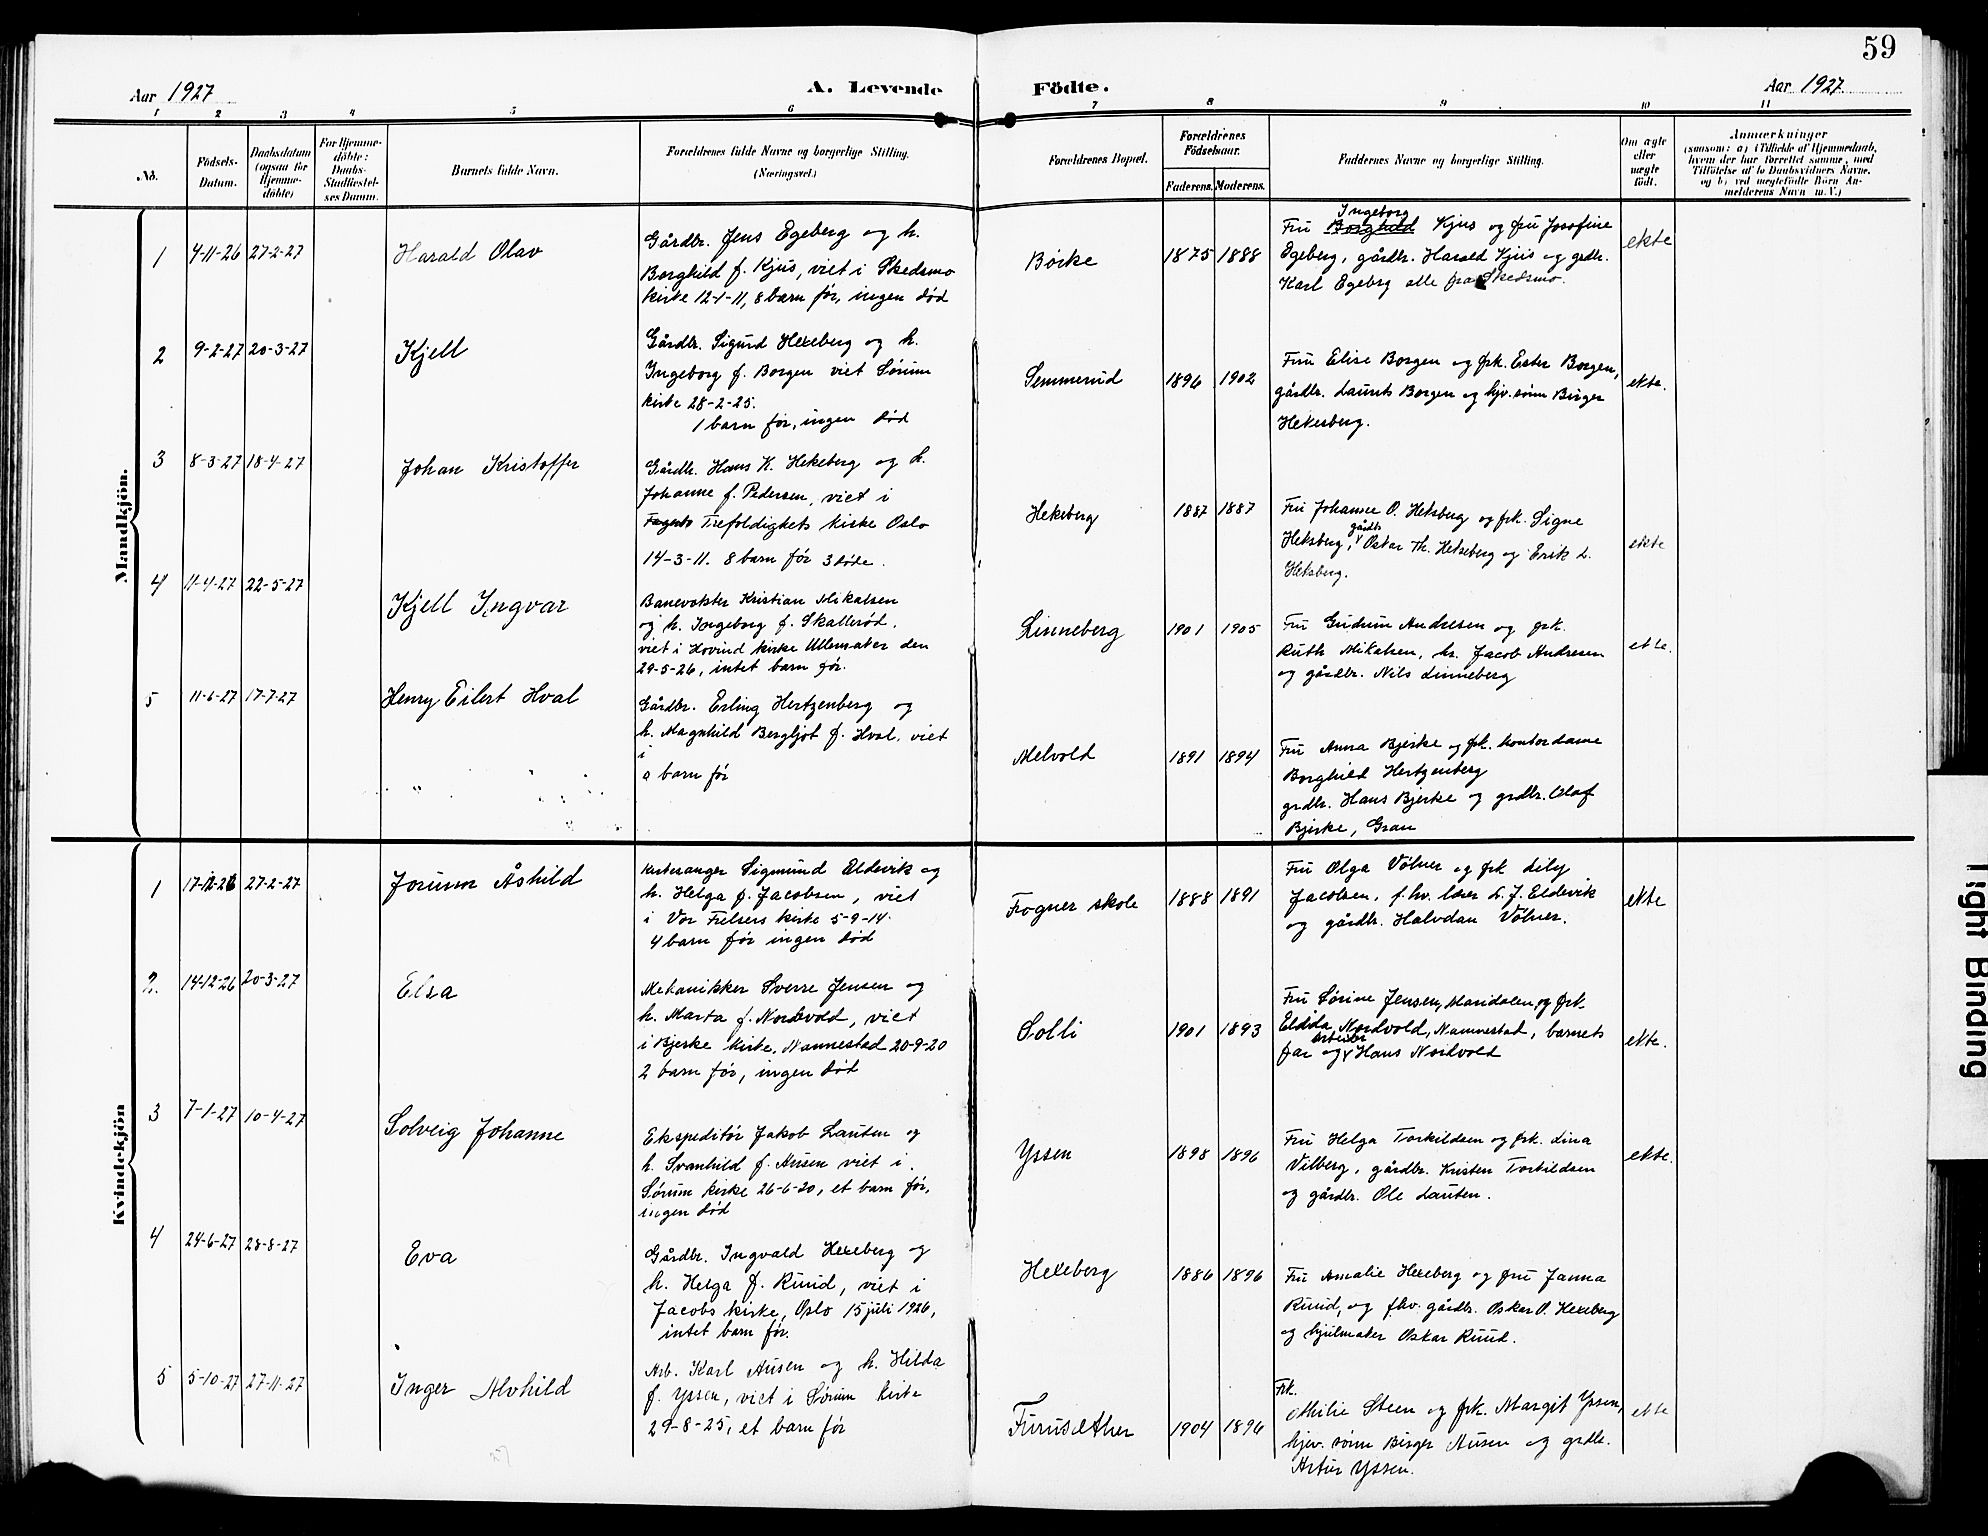 59
Aar 1927
A. Levende
Födte.
Aar 1927
1 2 3 4 5 6 7 8 9 10 11
No.
Födsels-
Datum.
Daabsdatum
(ogsaa for
Hjemme-
döbte)
For Hjemme-
döbte:
Daabs-
Stadfæstel-
ses Datum.
Barnets fulde Navn.
Forældrenes fulde Navne og borgerlige Stilling.
(Næringsvei.)
Forældrenes Bopæl.
Forældrenes
Födselsaar.
Faderens. Moderens.
Faddernes Navne og borgerlige Stilling.
Om ægte
eller
uægte
født.
Anmærkninger
(saasom: a) (Tilfælde af Hjemmedaab,
hvem der har forrettet samme, med
Tilföielse af to Daabsvidners Navne,
og b) ved uægtefödte Börn An-
melderens Navn m. V.)
Mandkjön.
1 4-11-26 27-2-27 Harald Olav
Gårdbr. Jens Egeberg og h.
Borghild f. Kjus, viet i Skedsmo
kirke 12-1-11, 8 barn før, ingen død
Børke 1875 1888
Ingeborg
Fru Borghild Kjus og fru Josefine
Egeberg, gårdbr. Harald Kjus og grdbr.
Karl Egeberg alle fra Skedsmo.
ekte
2 9-2-27 20-3-27 Kjell
Gårdbr. Sigurd Hexeberg og h.
Ingeborg f. Borgen viet Sørum
kirke 28-2-25.
1 barn før, ingen død
Semmerud 1896 1902
Fru Elise Borgen og frk. Ester Borgen,
gårdbr. Laurits Borgen og hjv. sønn Birger
Hekseberg.
ekte.
3 8-3-27 18-4-27 Johan Kristoffer
Gårdbr. Hans K. Hekseberg og h.
Johanne f. Pedersen, viet i
Trefoldighets kirke Oslo
14-3-11. 8 barn før 3 døde.
Heksberg 1887 1887
Fru Johanne O. Heksberg og frk. Signe
gårdbr
Heksberg, Oskar Th. Hekseberg og Erik L.
Heksberg.
ekte
4 11-4-27 22-5-27 Kjell Ingvar
Banevokter Kristian Mikalsen
og h. Ingeborg f. Skallerød.
viet i Hovind kirke Ullensaker den
29-5-26, intet barn før.
Linneberg 1901 1905
Fru Gudrun Andresen og frk.
Ruth Mikalsen, hr. Jacob Andresen
og gårdbr. Nils Linneberg
ekte.
5 11-6-27 17-7-27 Henry Eilert Hval
Gårdbr. Erling Hertzenberg og
h. Magnhild Bergljot f. Hval, viet
i
0 barn før
Melvold 1891 1894
Fru Anna Bjerke og frk. kontordame
Borghild Hertzenberg
grdbr. Hans Bjerke og grdbr. Olaf
Bjerke, Gran
Kvindekjön
1 17-12-26 27-2-27 Jorunn Åshild
Kirkesanger Sigmund Eldevik og
h. Helga f. Jacobsen, viet
i Vor Frelsers kirke 5-9-14.
4 barn før ingen død
Frogner skole 1888 1891
Fru Olga Vølner og frk Lily
Jacobsen, f. hv. lærer L. J. Eldevik
og gårdbr. Halvdan Vølner.
ekte
2. 14-12-26 20-3-27 Elsa
Mekanikker Sverre Jensen og
h. Marta f. Nordvold, viet
i Bjerke kirke, Nannestad 20-9-20
2 barn før, ingen død
Solli 1901 1893
Fru Sørine Jensen, Maridalen, og frk
Eldida Nordvold, Nannestad, barnets
arbeider
far og Hans Nordvold
ekte.
3 7-1-27 10-4-27 Solveig Johanne
Ekspeditør Jakob Lauten og
h. Svanhild f. Ausen viet i
Sørum kirke 26-6-20, et barn før,
ingen død
Yssen 1898 1896
Fru Helga Torkildsen og frk. Lina
Vilberg, gårdbr. Kristen Torkildsen
og gårdbr. Ole Lauten.
ekte.
4 24-6-27 28-8-27 Eva
Gårdbr. Ingvald Hexeberg og
h. Helga f. Ruud, viet i
Jacobs kirke, Oslo 15 juli 1926,
intet barn før.
Hexeberg 1886 1896
Fru Amalie Hexeberg og fru Janna
Ruud, og fhv. gårdbr. Oskar O. Hexeberg
og hjulmaker Oskar Ruud.
5 5-10-27 27-11-27 Inger Alvhild
Arb. Karl Ausen og h. Hilda
f. Yssen, viet i Sørum kirke
29-8-25, et barn før
Furusæther 1904 1896
Frk.
Milie Steen og frk. Margit Yssen,
hjev. sønn Birger Ausen og grdbr.
Artur Yssen.
ekte
Tight Binding